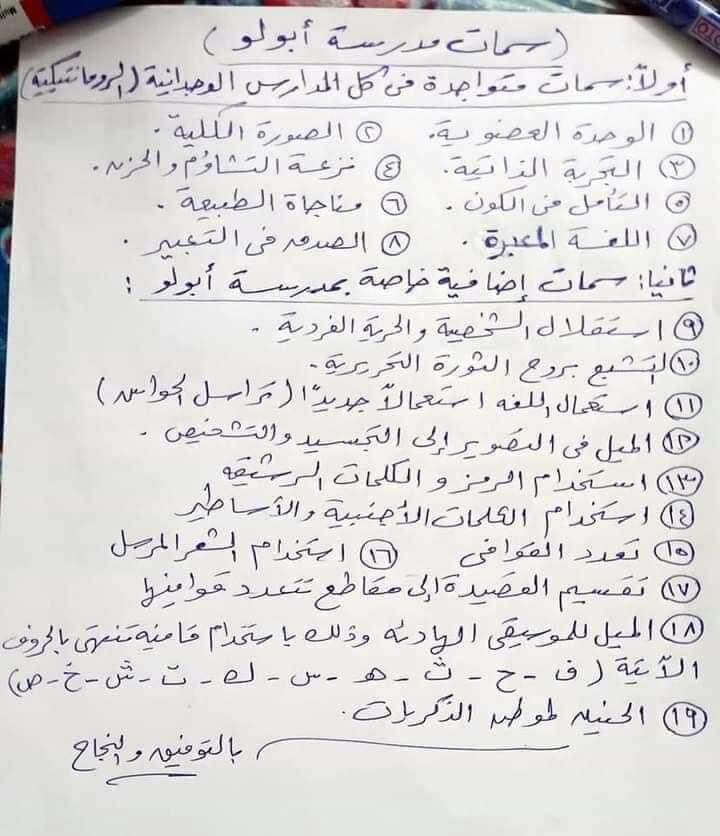 (سمات مدرسة أبولو)
أولاً: سمات متواجدة فى كل المدارس الوجدانية (الرومانتيكية)
١ الوحدة العضوية. ٢ الصورة الكلية.
٣ التجربة الذاتية. ٤ نزعة التشاؤم والحزن.
٥ التأمل فى الكون. ٦ مناجاة الطبيعة.
٧ اللغة المعبرة. ٨ الصدق فى التعبير.
ثانيا: سمات إضافية خاصة بمدرسة أبولو:
٩ استقلال الشخصية والحرية الفردية.
١٠ التشبع بروح الثورة التحريرية.
١١ استعمال اللغه استعمالاً جديدًا (تراسل الحواس)
١٢ الميل فى التصوير إلى التجسيد والتشخيص.
١٣ استخدام الرمز والكلمات الرشيقه
١٤ استخدام الكلمات الأجنبية والأساطير
١٥ تعدد القوافى ١٦ استخدام الشعر المرسل
١٧ تقسيم القصيدة إلى مقاطع تتعدد قوافيها
١٨ الميل للموسيقى الهادئه وذلك باستخدام قافية تنتهى بالحروف
الآتية (ف - ح - ث - هـ - س - ك - ت - ش - خ - ص)
١٩ الحنين لموطن الذكريات.
بالتوفيق والنجاح